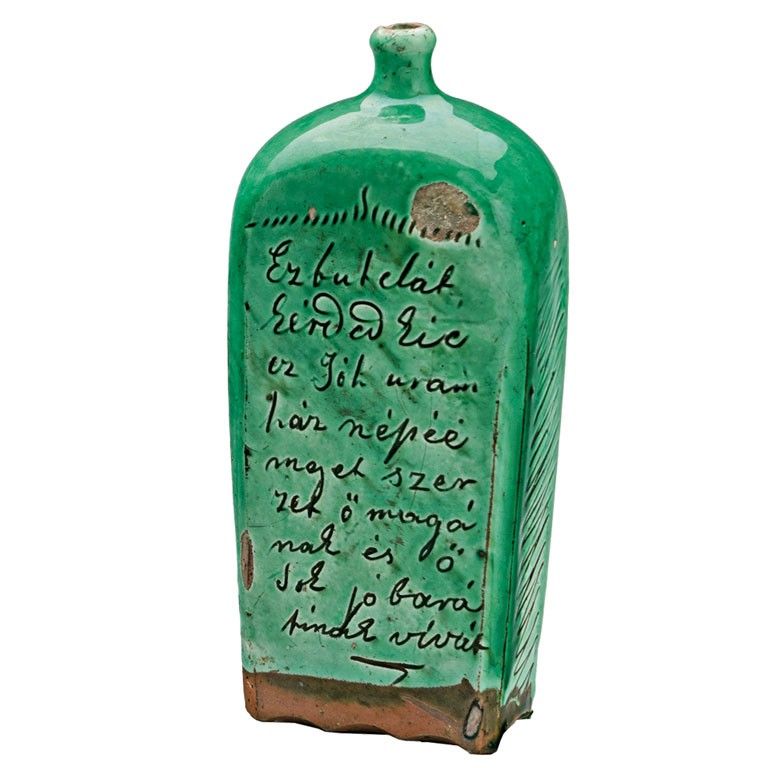 Ez butelát
kérded kié
ez Jók uram
ház népéé
mejet szer
zet ő magá
nak és ő
Sok jó bará
tinak vívát